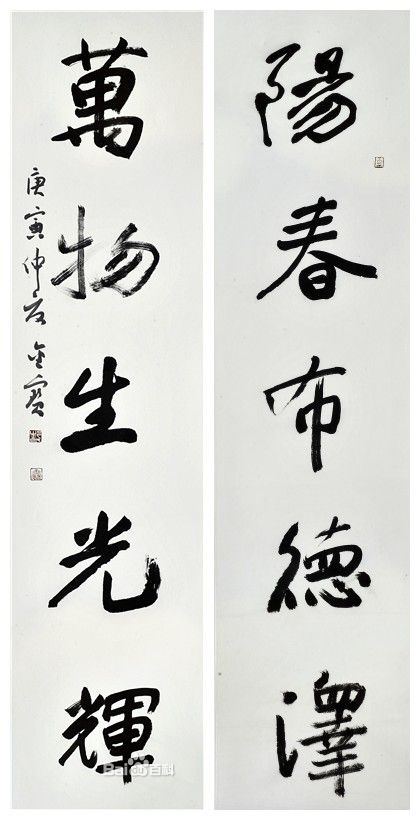 陽春布德澤
萬物生光輝
庚寅仲夏金寶
Baidu百科